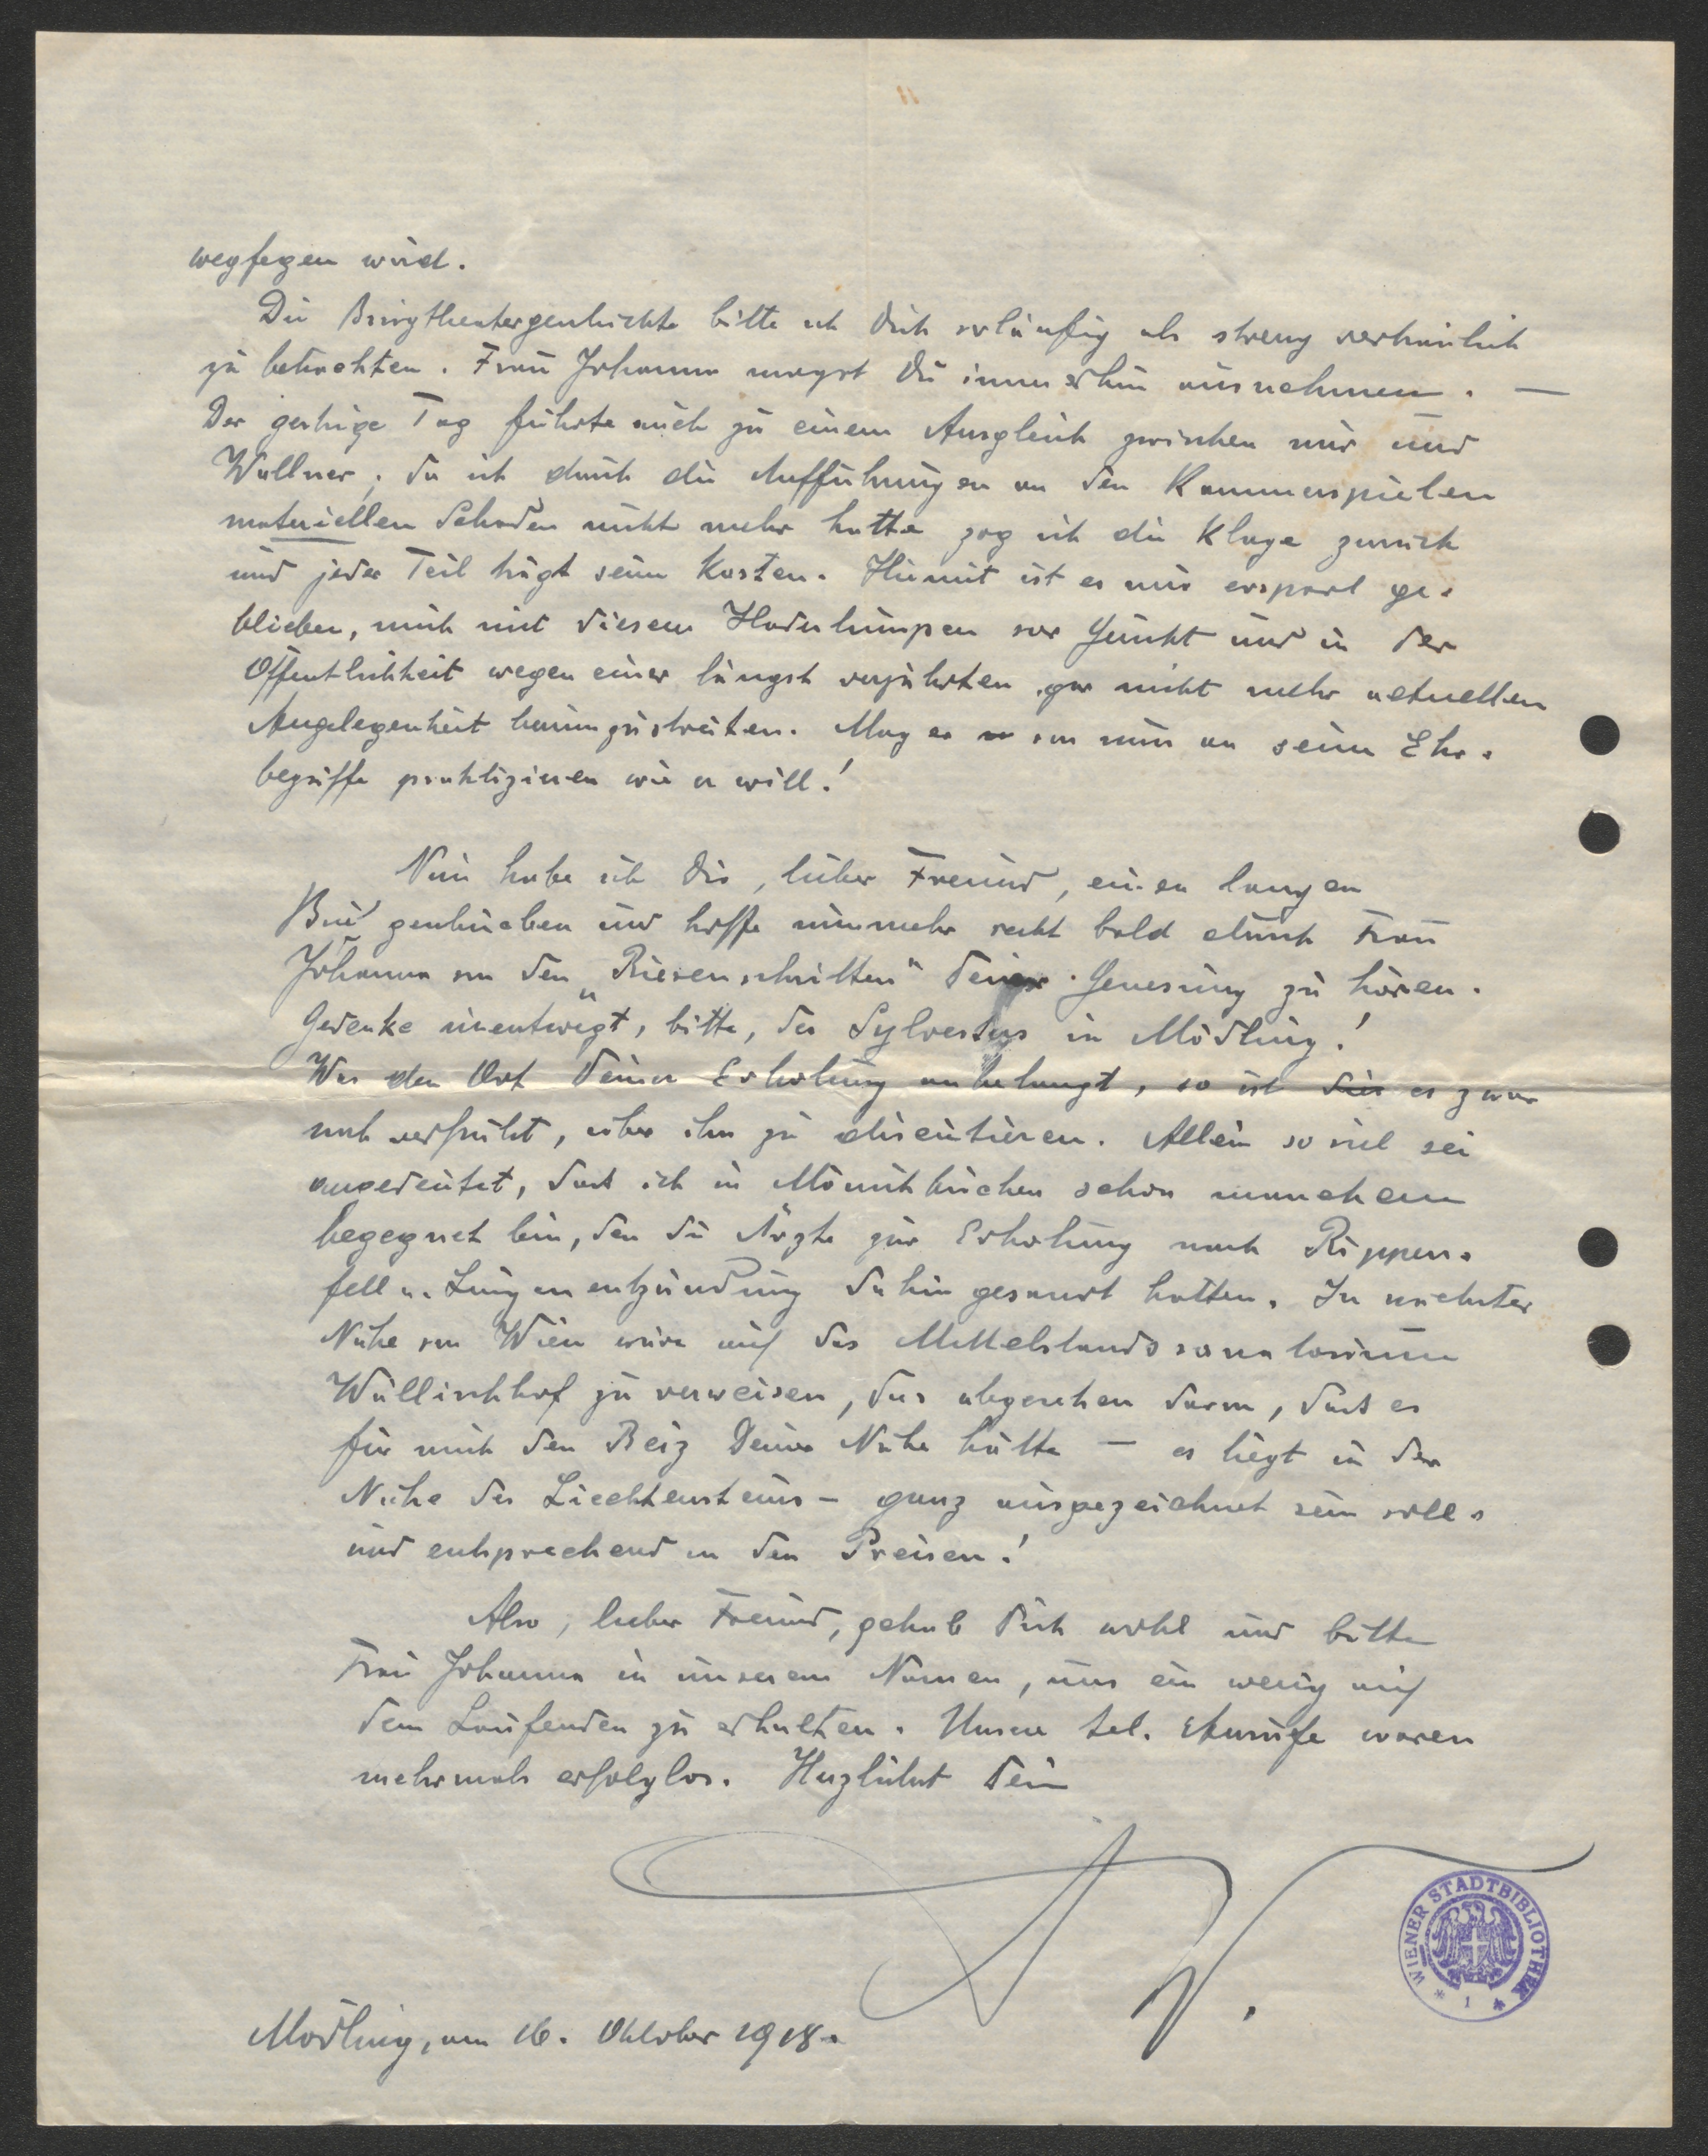 wegfegen wird.
Die Burgtheatergeschichte bitte ich Dich vorläufig als streng vertraulich
zu betrachten. Frau Johanna magst Du immerhin ausnehmen. —
Der gestrige Tag führte auch zu einem Ausgleich zwischen mir und
Wallner; da ich durch die Aufführungen an den Kammerspielen
materiellen Schaden nicht mehr hatte zog ich die Klage zurück
und jeder Teil trägt seine Kosten. Hiemit ist es mir erspart ge-
blieben, mich mit diesem Haderlumpen vor Gericht und in der
Öffentlichkeit wegen einer längst verjährten, gar nicht mehr actuellen
Angelegenheit herumzustreiten. Mag er von nun an seine Ehr-
begriffe praktizieren wie er will!
Nun habe ich Dir, lieber Freund, einen langen
Brief geschrieben und hoffe nunmehr recht bald durch Frau
Johanna von den „Riesenschritten" Deiner Genesung zu hören.
Gedenke unentwegt, bitte, des Sylvesters in Mödling!
Was den Ort Deiner Erholung anbelangt, so ist es zwar
noch verfrüht, über ihn zu discutieren. Allein so viel sei
angedeutet, dass ich in Mönichkirchen schon manchem
begegnet bin, den die Ärzte zur Erholung nach Rippen-
fell u. Lungenentzündung dahin gesandt hatten. In nächster
Nähe von Wien wäre auf das Mittelstandssanatorium
Wällischhof zu verweisen, das abgesehen davon, dass es
für mich den Reiz Deiner Nähe hätte — es liegt in der
Nähe des Liechtensteins — ganz ausgezeichnet sein soll.
und entsprechend in den Preisen!
Also, lieber Freund, gehab Dich wohl und bitte
Frau Johanna in unserem Namen, uns ein wenig auf
dem Laufenden zu erhalten. Unsere tel. Anrufe waren
mehrmals erfolglos. Herzlichst Dein
Mödling, am 16. Oktober 1918.
WIENER STADTBIBLIOTHEK
* 1 *